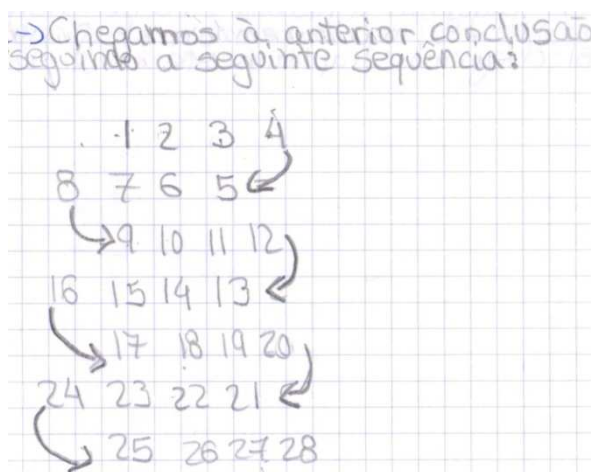 -> Chegamos à anterior conclusão
seguindo a seguinte sequência:
1 2 3 4
8 7 6 5
9 10 11 12
16 15 14 13
17 18 19 20
24 23 22 21
25 26 27 28